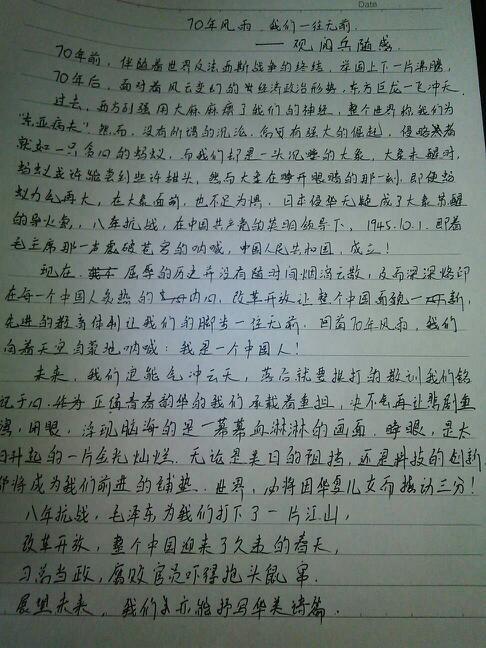 Date
70年风雨 我们一往无前.
——观阅兵随感.
70年前，伴随着世界反法西斯战争的终结，举国上下一片沸腾，
70年后，面对着风云变幻的世经济政治形势，东方巨龙一飞冲天.
过去，西方列强用大麻麻痹了我们的神经，整个世界称我们为
"东亚病夫".然而，没有所谓的沉沦，何可有强大的崛起，侵略者
就如一只贪心的蚂蚁，而我们却是一头沉睡的大象，大象未醒时，
蚂蚁或许能尝到些许甜头，然而大象在睁开眼睛的那一刻，即使蚂
蚁力气再大，在大象面前，也不足为惧.日本侵华无疑成了大象苏醒
的导火索，八年抗战，在中国共产党的英明领导下，1945.10.1.即着
毛主席那一声震破苍穹的呐喊，中国人民共和国，成立！
现在.屈辱的历史并没有随时间烟消云散，反而深深烙印
在每一个中国人炙热的内心，改革开放让整个中国面貌一新，
先进的教育体制让我们的脚步一往无前.回首70年风雨，我们
向着天空自豪地呐喊：我是一个中国人！
未来，我们定能气冲云天，落后就要挨打的教训我们铭
记于心.正值青春韶华的我们承载着重担，决不会再让悲剧重
演，闭眼，浮现脑海的是一幕幕血淋淋的画面.睁眼，是太
阳升起的一片金光灿烂.无论是美日的阻挡，还是科技的创新
都将成为我们前进的铺垫.世界，必将因华夏儿女而撼动三分！
八年抗战，毛泽东为我们打下了一片江山，
改革开放，整个中国迎来了久违的春天，
习总当政，腐败官员吓得抱头鼠窜.
展望未来，我们必亦能抒写华美诗篇.